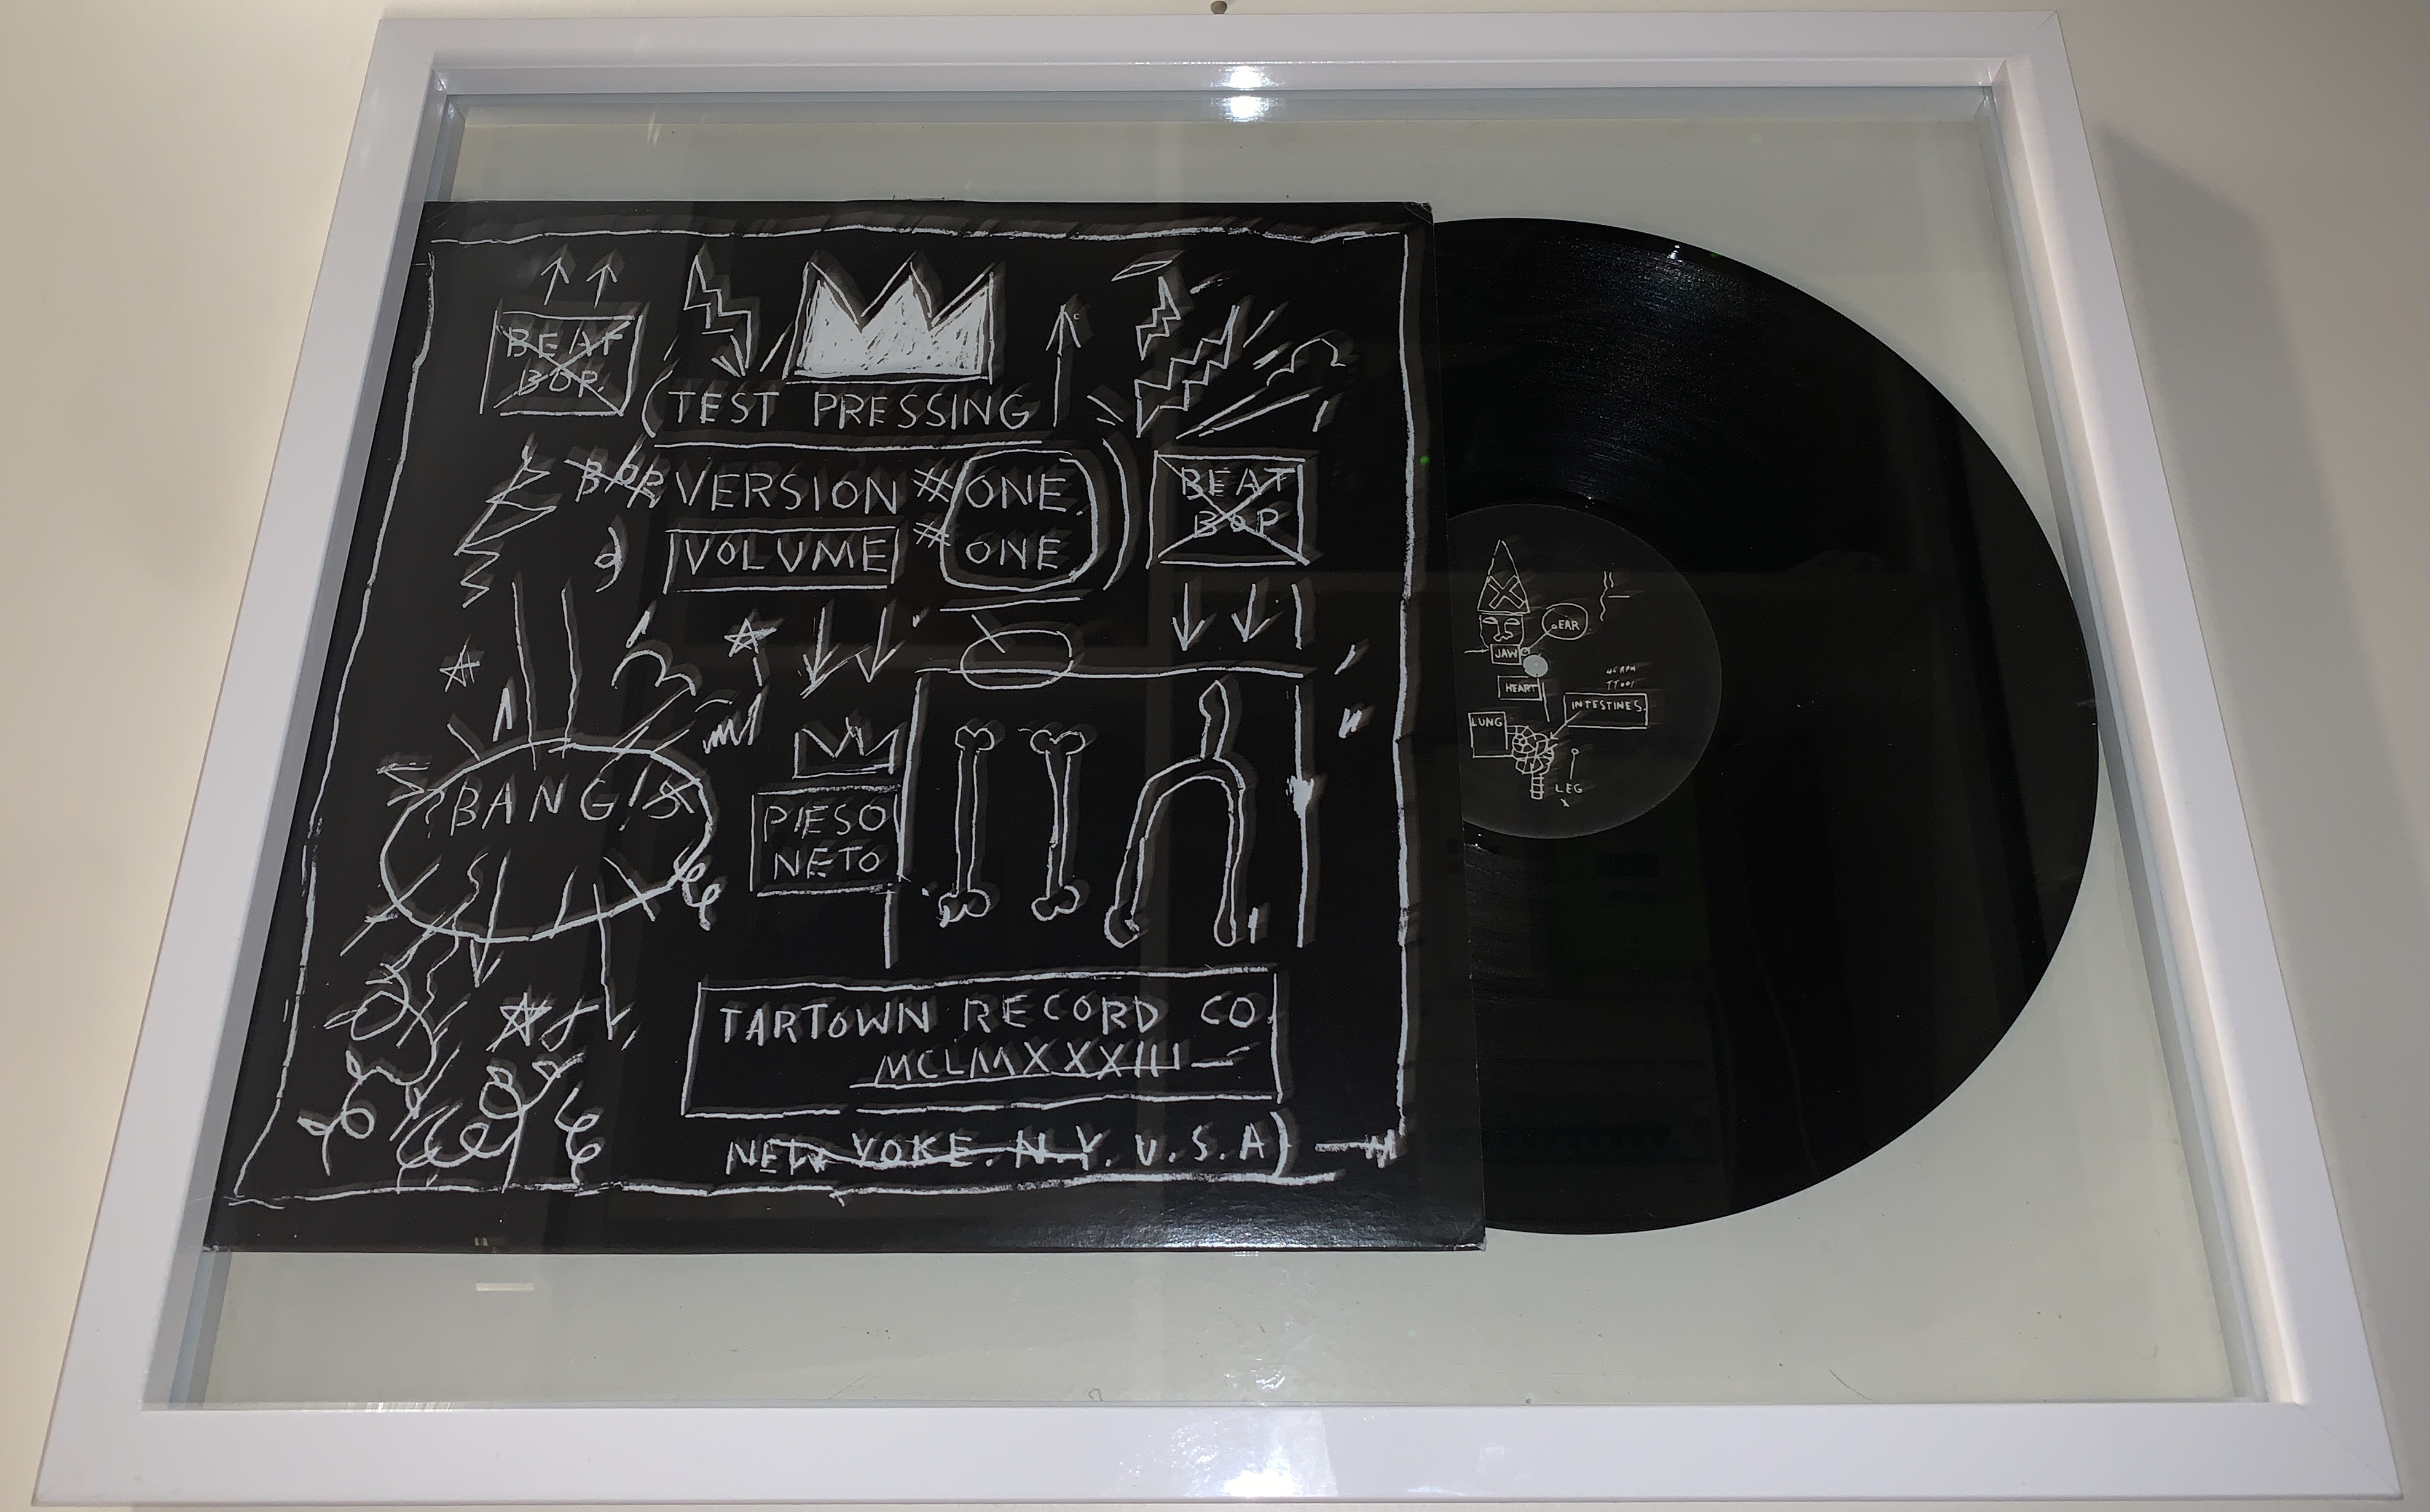 BEAT
BOP.
TEST PRESSING
BOP VERSION # ONE.
VOLUME # ONE
BEAT
BOP
?BANG!
PIESO
NETO
TARTOWN RECORD CO.
MCLMXXXIII
NEW YOKE. N.Y. U.S.A)
EAR
JAW
HEART
45 RPM
TT001
INTESTINES.
LUNG
LEG
X